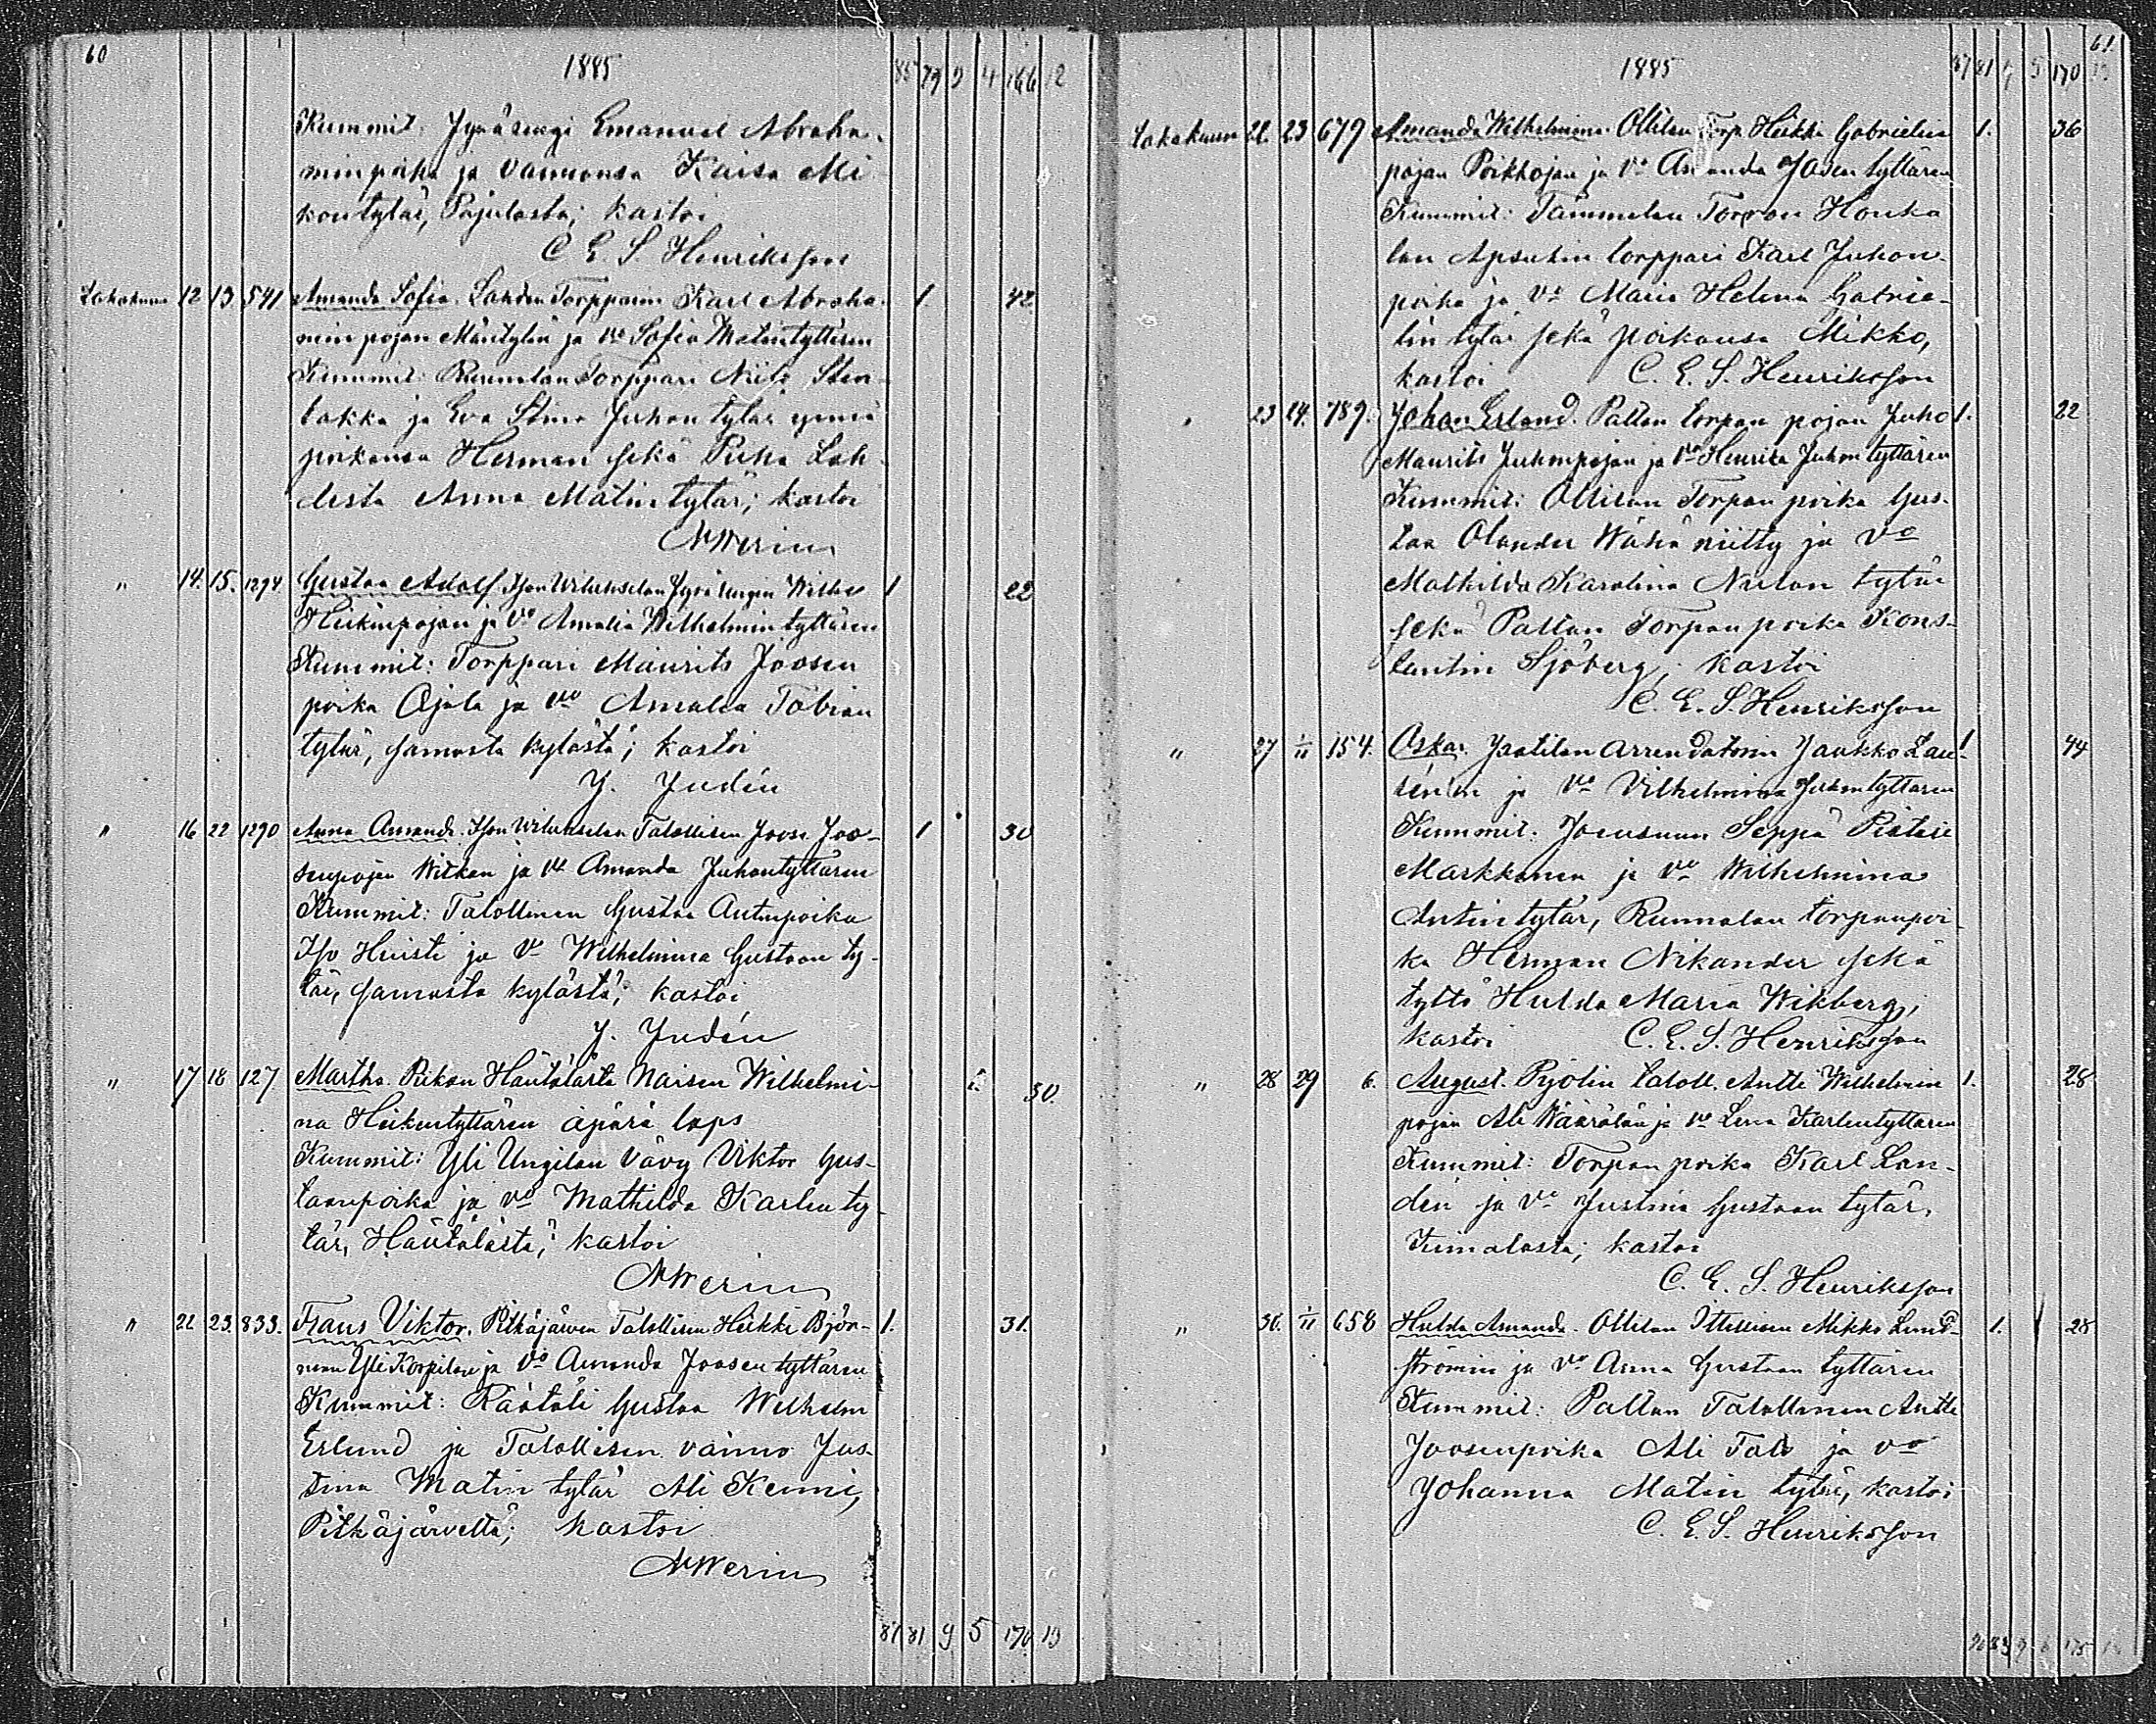 60
1885
85 79 9 4 166 12
Kummit: Jyväsengi Emanuel Abraha-
minpoika ja vaimonsa Kaisa Mi
kontytär, Pajulasta; kastoi
C. E. S. Henriksson
Lokakuun 12 13 541 Amanda Sofia. Lahden Torpparin Karl Abraha- 1 42.
minpojan Mäntylän ja vo Sofia Matintyttären
Kummit: Torppari Niilo Sten-
lakka ja Eva Stina Juhontytär ynnä
poikansa Herman sekä Piika Lah-
desta Anna Matintytär; kastoi
" 14. 15. 1294 Gustaa Adolf Wilho 1 22
Heikinpojan ja Vo Amalia Wilhelmintyttären
Kummit: Torppari Maurits Joosen
poika Ojala ja vo Amalia Tobian
tytär, samasta kylästä; kastoi
" 16 22 1290 Anna Amanda. Talollisen Joose Joo- 1 30
senpojan ja vo Amanda Juhontyttären
Kummit: Talollinen Gustaa Antinpoika
Iso Heisti ja Vo Wilhelmina Gustaan ty-
tär, samasta kylästä; kastoi
" 17 18 127 Martha. Piikan Häntälästä Naisen Wilhelmi- 1. 50.
na Heikintyttären äpärä laps
Kummit: Yli Ungilan vävy Viktor Gus-
taanpoika ja vo Mathilda Karlen ty-
tär, Häntälästä; kastoi
" 22 23. 833. Frans Viktor. Pitkäjärven Talollisen Heikki Björ- 1. 31.
man Yli Korpilan ja Vo Amanda Joosen tyttären
Kummit: Räätäli Gustaa Wilhelm
Erlund ja Talollisen vaimo Jus-
tina Matin tytär Ali Kenni,
Pitkäjärveltä; kastoi
87 81 9 5 170 13
61.
1885
87 81 9 5 170 13
Lokakuun 22. 23 679 Amanda Wilhelmina. Ollilan Torp. Heikki Gabrielin 1. 36
pojan Poikkojan ja Vo Amanda Josen tyttären
Kummit: Tammelan Torron Honka
lan Apsukin torppari Karl Juhon
poika ja Vo Maria Helena Gabrie-
lin tytär sekä poikansa Mikko,
kastoi C. E. S. Henriksson
" 23 24. 789. Johan Erland. Paltan torpan pojan Juho 1. 22
Maurits Juhonpojan ja Vo Henrika Juhontyttären
Kummit: Ollilan Torpan poika Gus-
taa Olander Wähä niitty ja Vo
Mathilda Karolina tytär
sekä Paltan Torpan poika Kons-
tantin Sjöberg; kastoi
C. E. S. Henriksson
" 27 1/11 154. Oskar. Jaatilan arrendatorin Jaakko Lau- 1 44
sénin ja Vo Vilhelmina Juhontyttären
Kummit: Seppä
Markkanen ja Vo Wilhelmina
Antintytär, torpanpoi-
ka Herman Nikander sekä
tyttö Hulda Maria Wikberg,
kastoi C. E. S. Henriksson
" 28 29 6. August. Pyölin taloll. Antti Wilhelmin 1. 28.
pojan Ali Wäärälän ja vo Lena Karlentyttären
Kummit: Torpan poika Karl Lan-
dén ja Vo Justina Gustaan tytär,
kastoi
C. E. S. Henriksson
" 30. 1/11 658 Hulda Amanda. Ollilan Itellisen Mikko Lund- 1. 28
strömin ja Vo Anna Gustaan tyttären
Kummit: Paltan Talollinen Antti
Joosenpoika Ali Talo ja vo
Johanna Matin tytär, kastoi
C. E. S. Henriksson